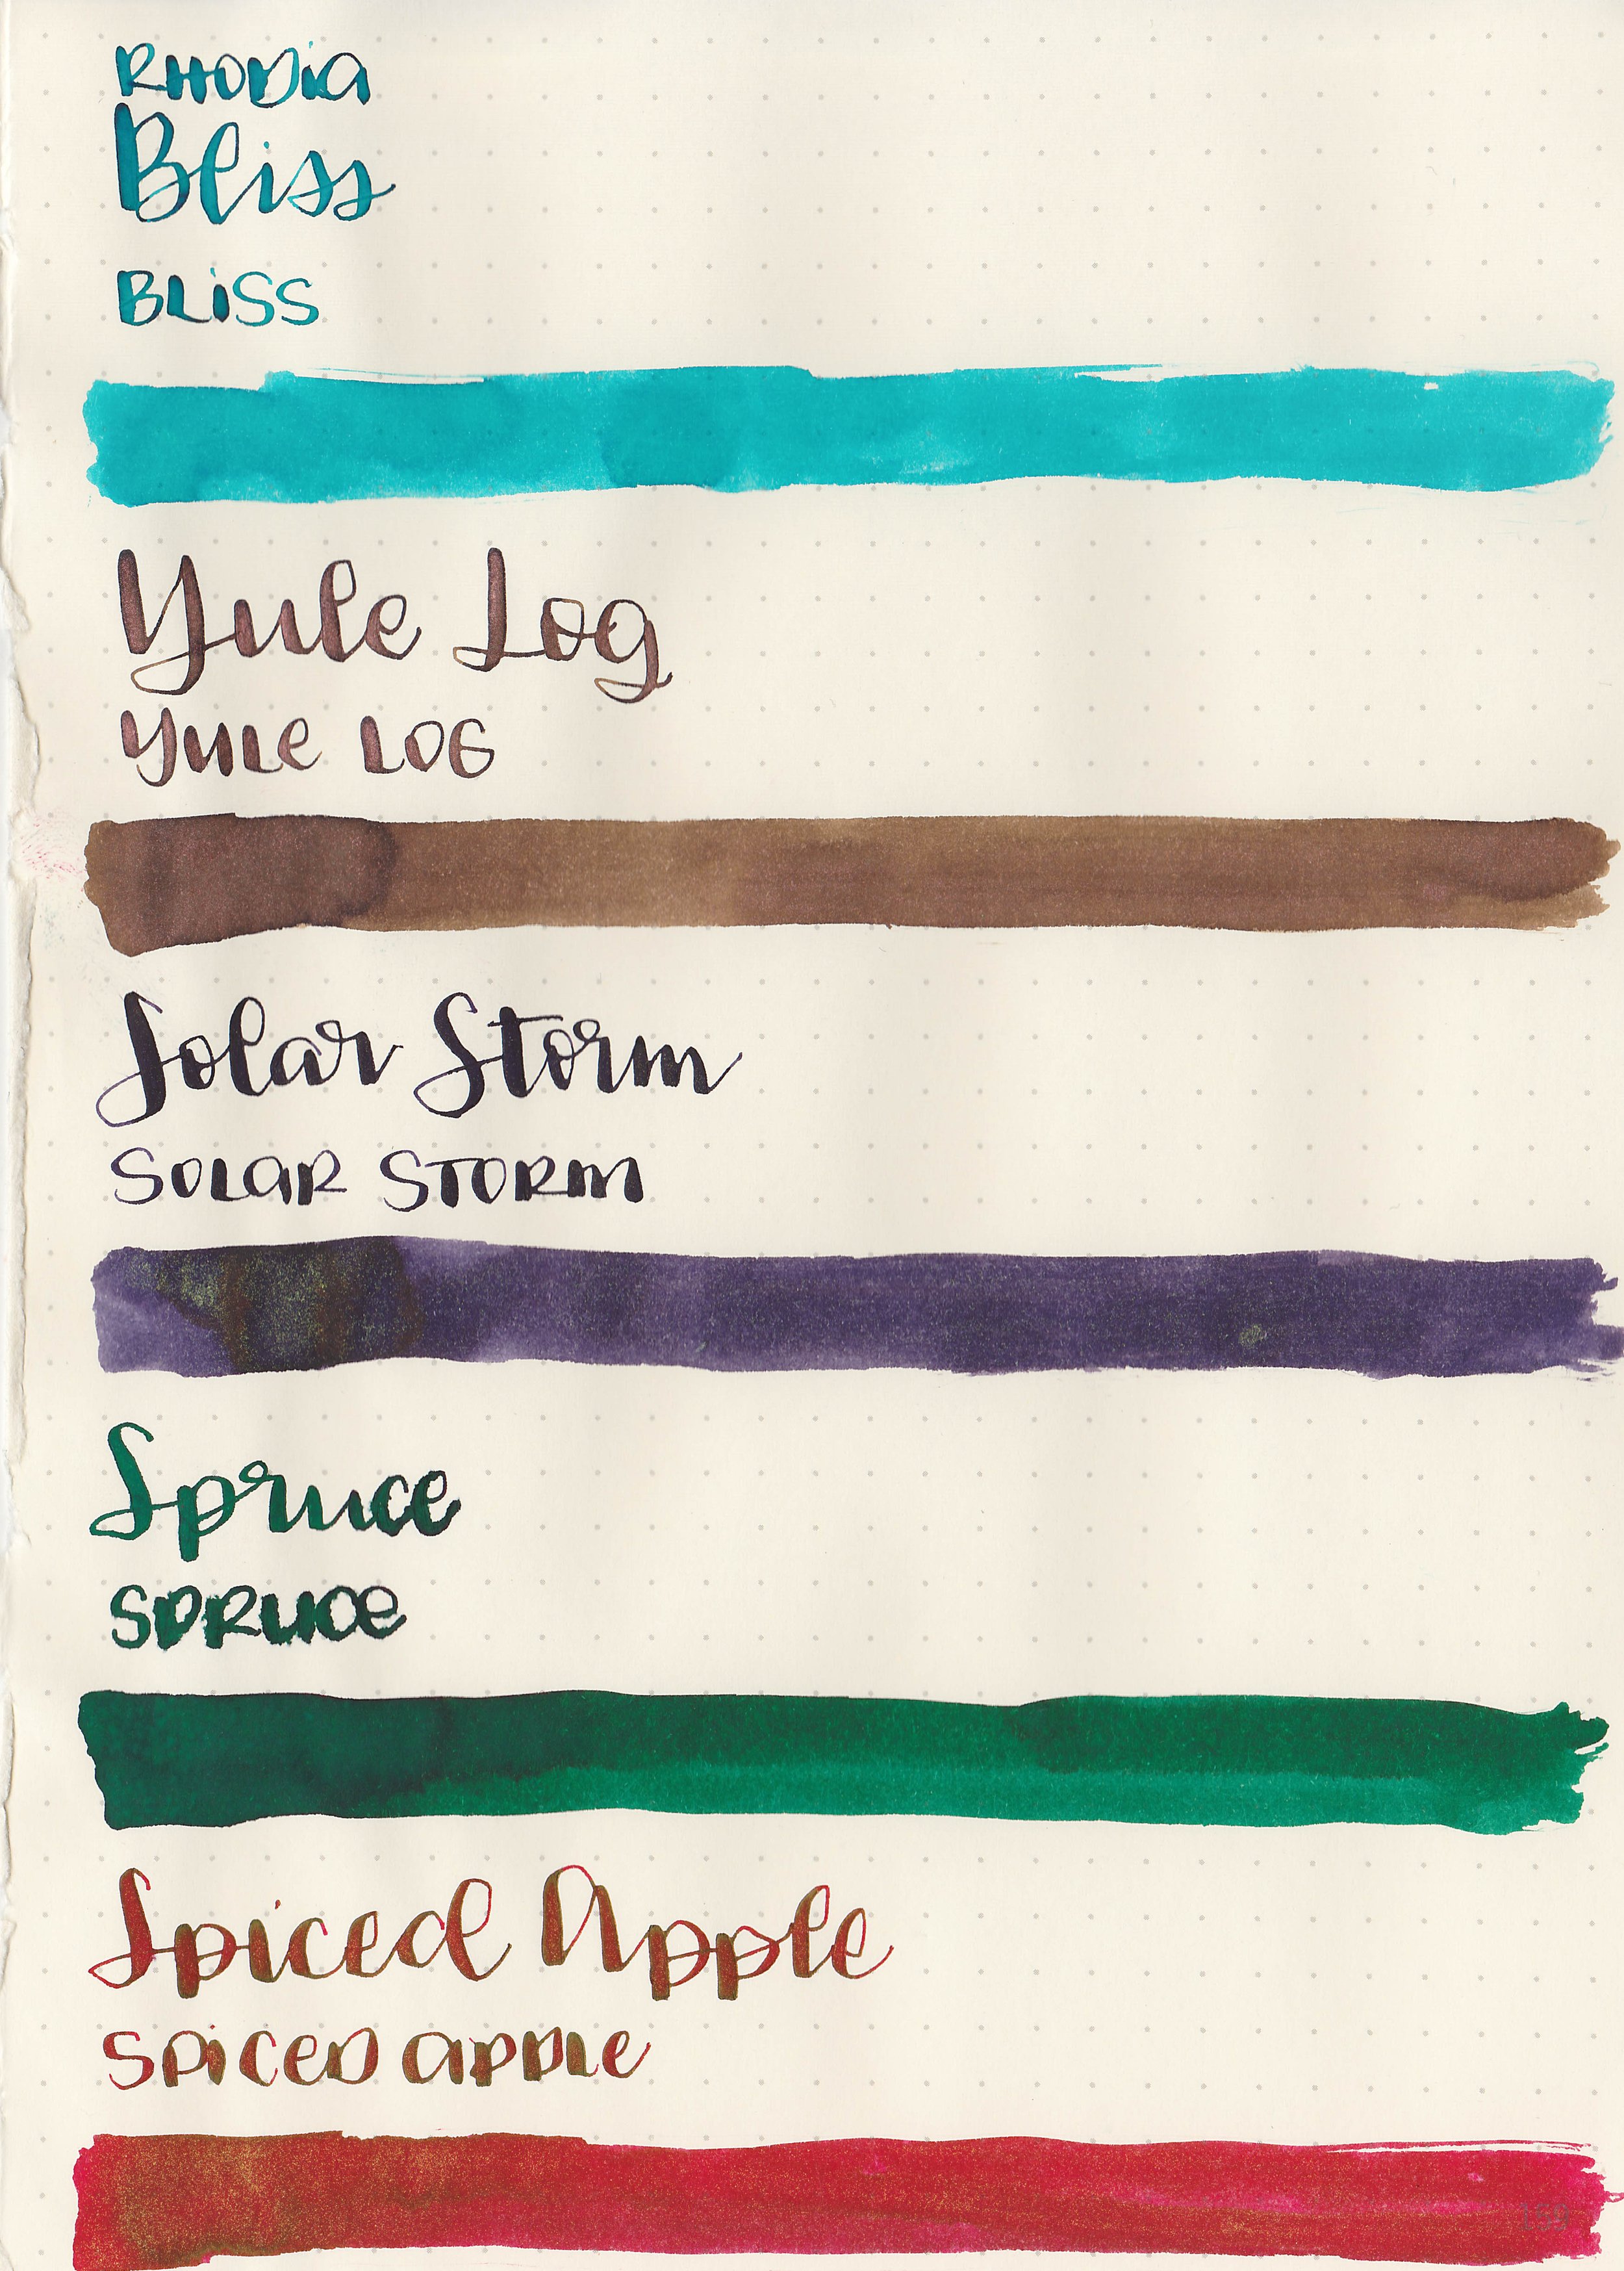 RHODIA
Bliss
BLiSS
Yule Log
YULE LOG
Solar Storm
SOLAR STORM
Spruce
SPRUCE
Spiced Apple
SPICED APPLE
159